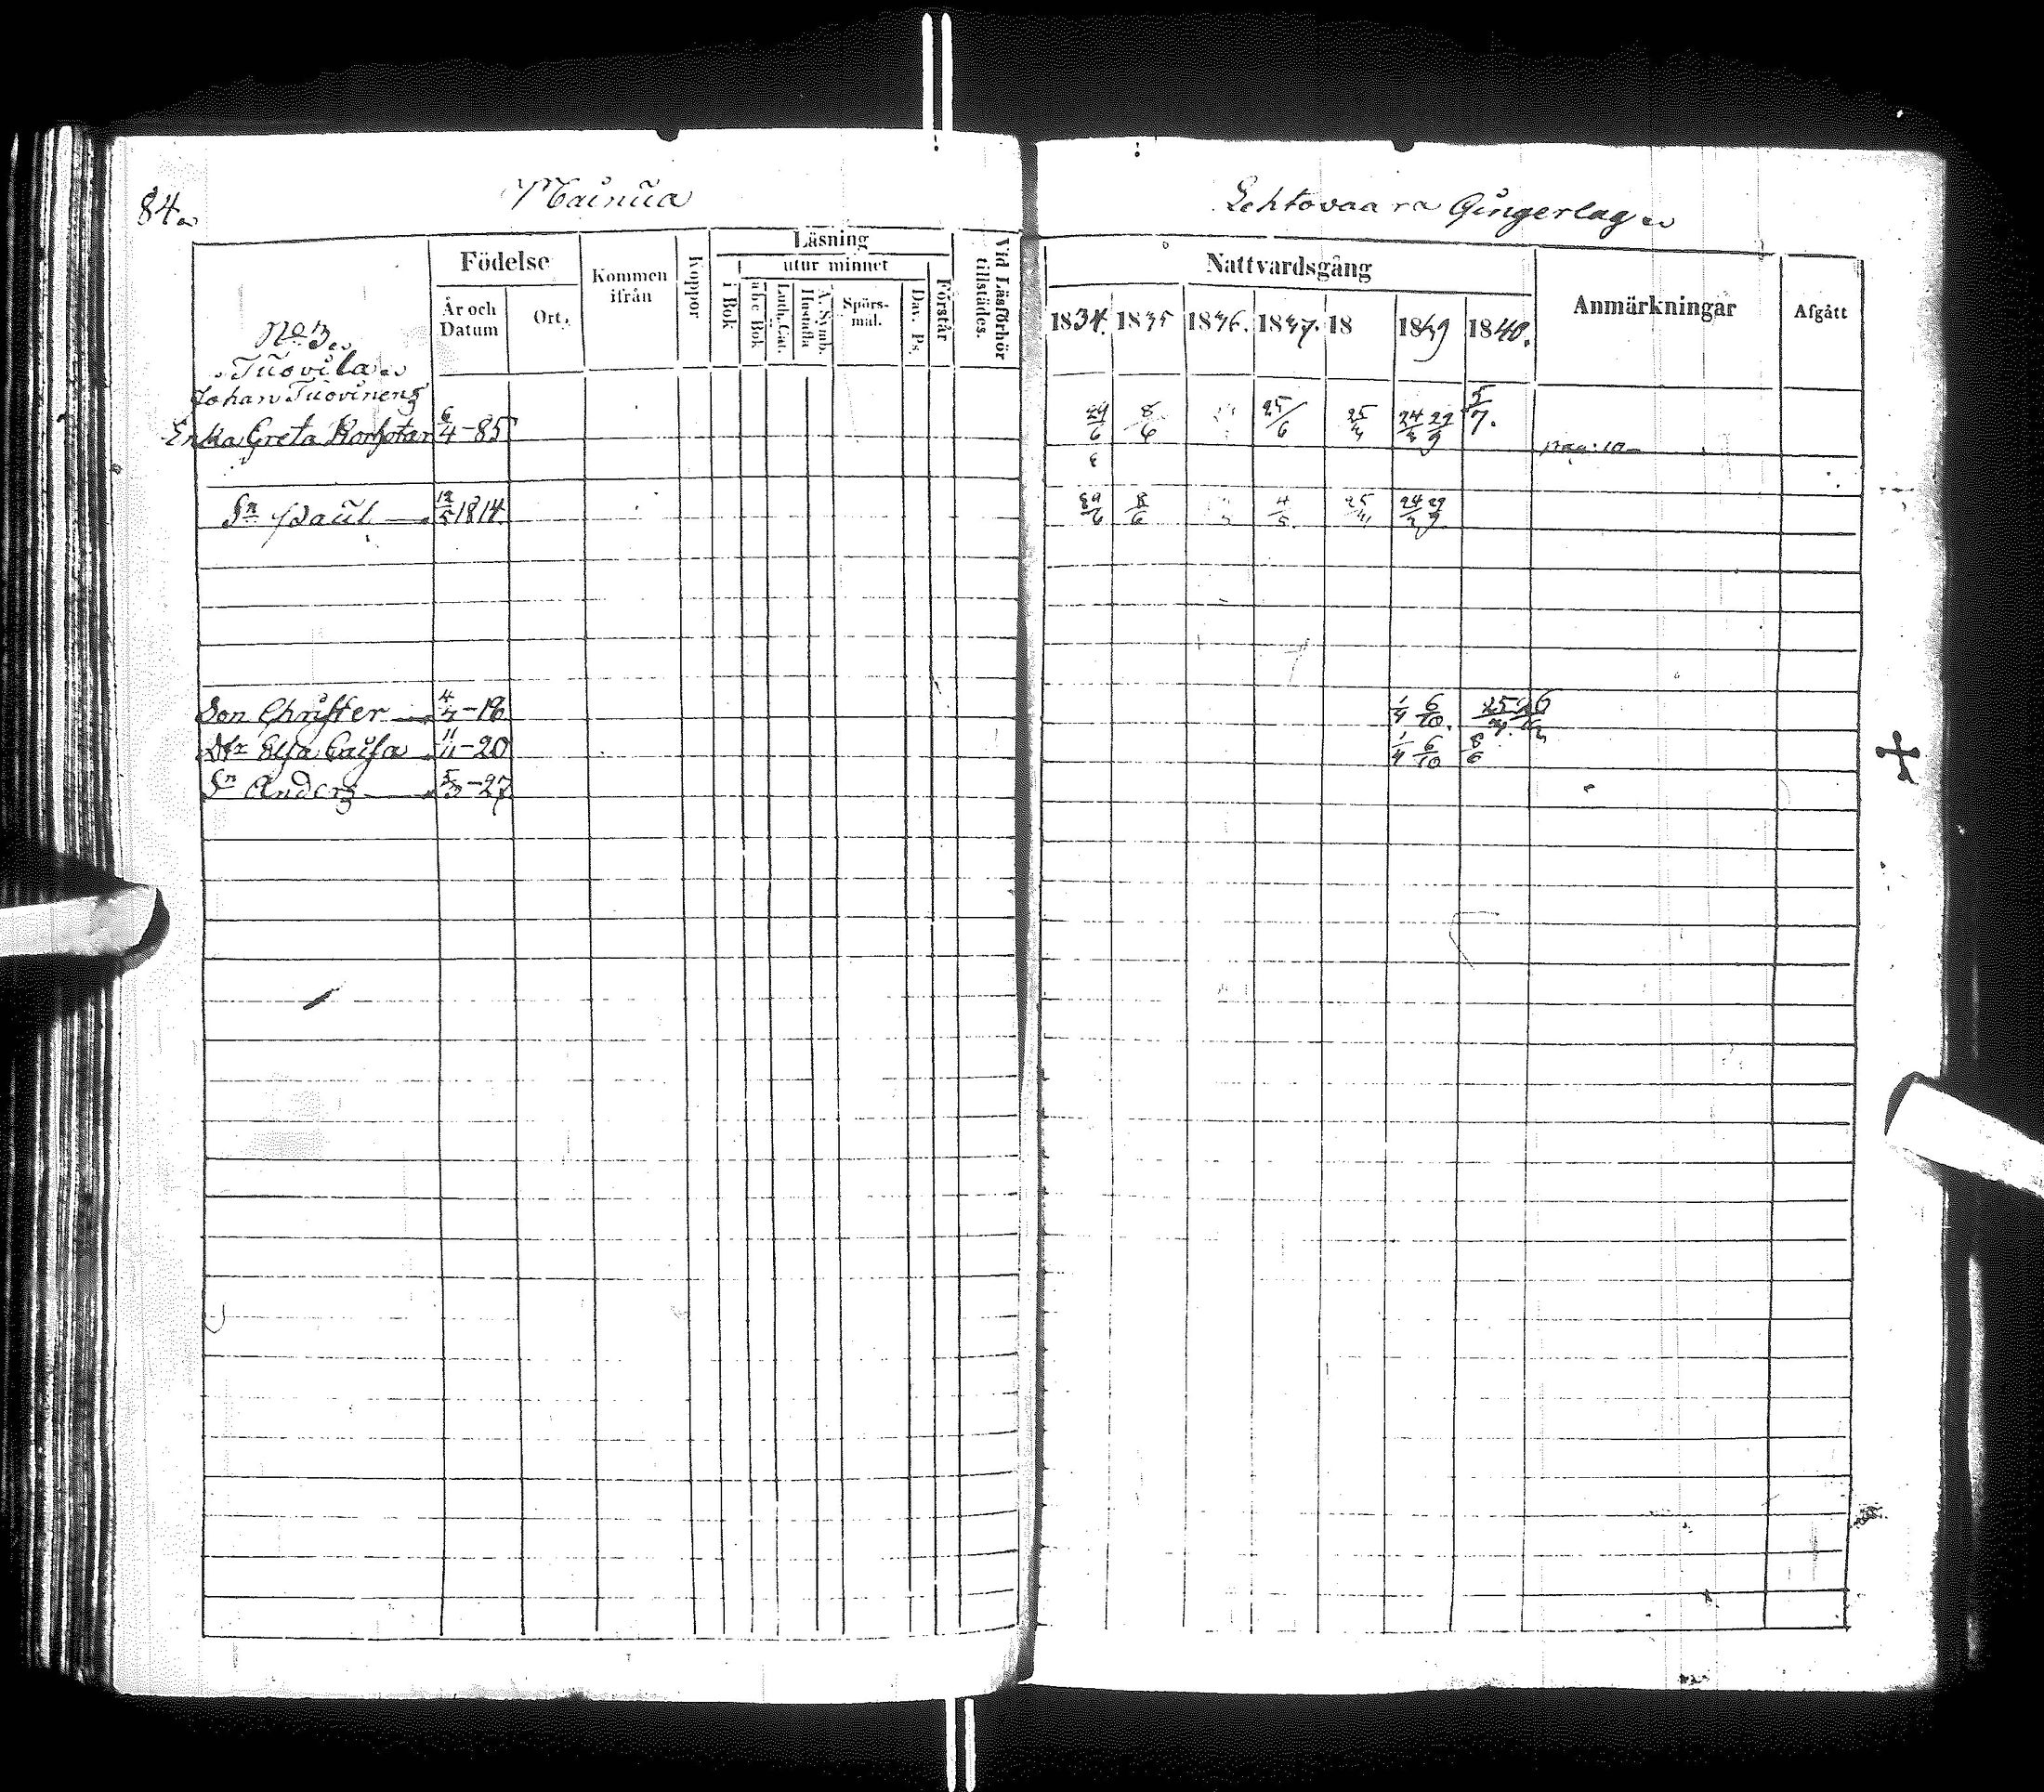 84
Mainua
Lehtovaara Gingerlag
Födelse
År och Datum
Ort.
Kommen ifrån
Koppor
Läsning
utur minnet
i Bok
abc Bok
Luth. Cat.
A. Symb. Hustafla
Spörsmål.
Dav. Ps.
Förstår
Vid Läsförhör tillstädes.
Nattvardsgång
1834. 1835 1836. 1837. 18 1839 1840.
Anmärkningar
Afgått
No 3
Tuovila
Johan Tuovinens
Enka Greta Korhotar 6/4 -85 29/6 8/6 25/6 24/3 29/9 5/7.
pag: 10
Sn Paul 12/5 1814 29/6 8/6 4/5 24/3 29/9
Son Christer -18 1/4 6/10.
Dtr Elsa Caisa 11/11 -20 1/4 6/10 8/6
Sn Anders 5/3 -27